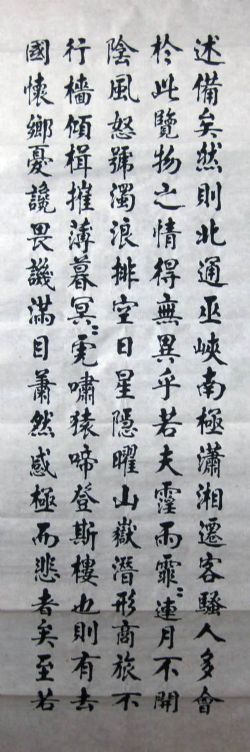 述備矣然則北通巫峽南極瀟湘遷客騷人多會
於此覽物之情得無異乎若夫霪雨霏〻連月不開
陰風怒號濁浪排空日星隱曜山嶽潛形商旅不
行檣傾楫摧薄暮冥〻虎嘯猿啼登斯樓也則有去
國懷鄉憂讒畏譏滿目蕭然感極而悲者矣至若